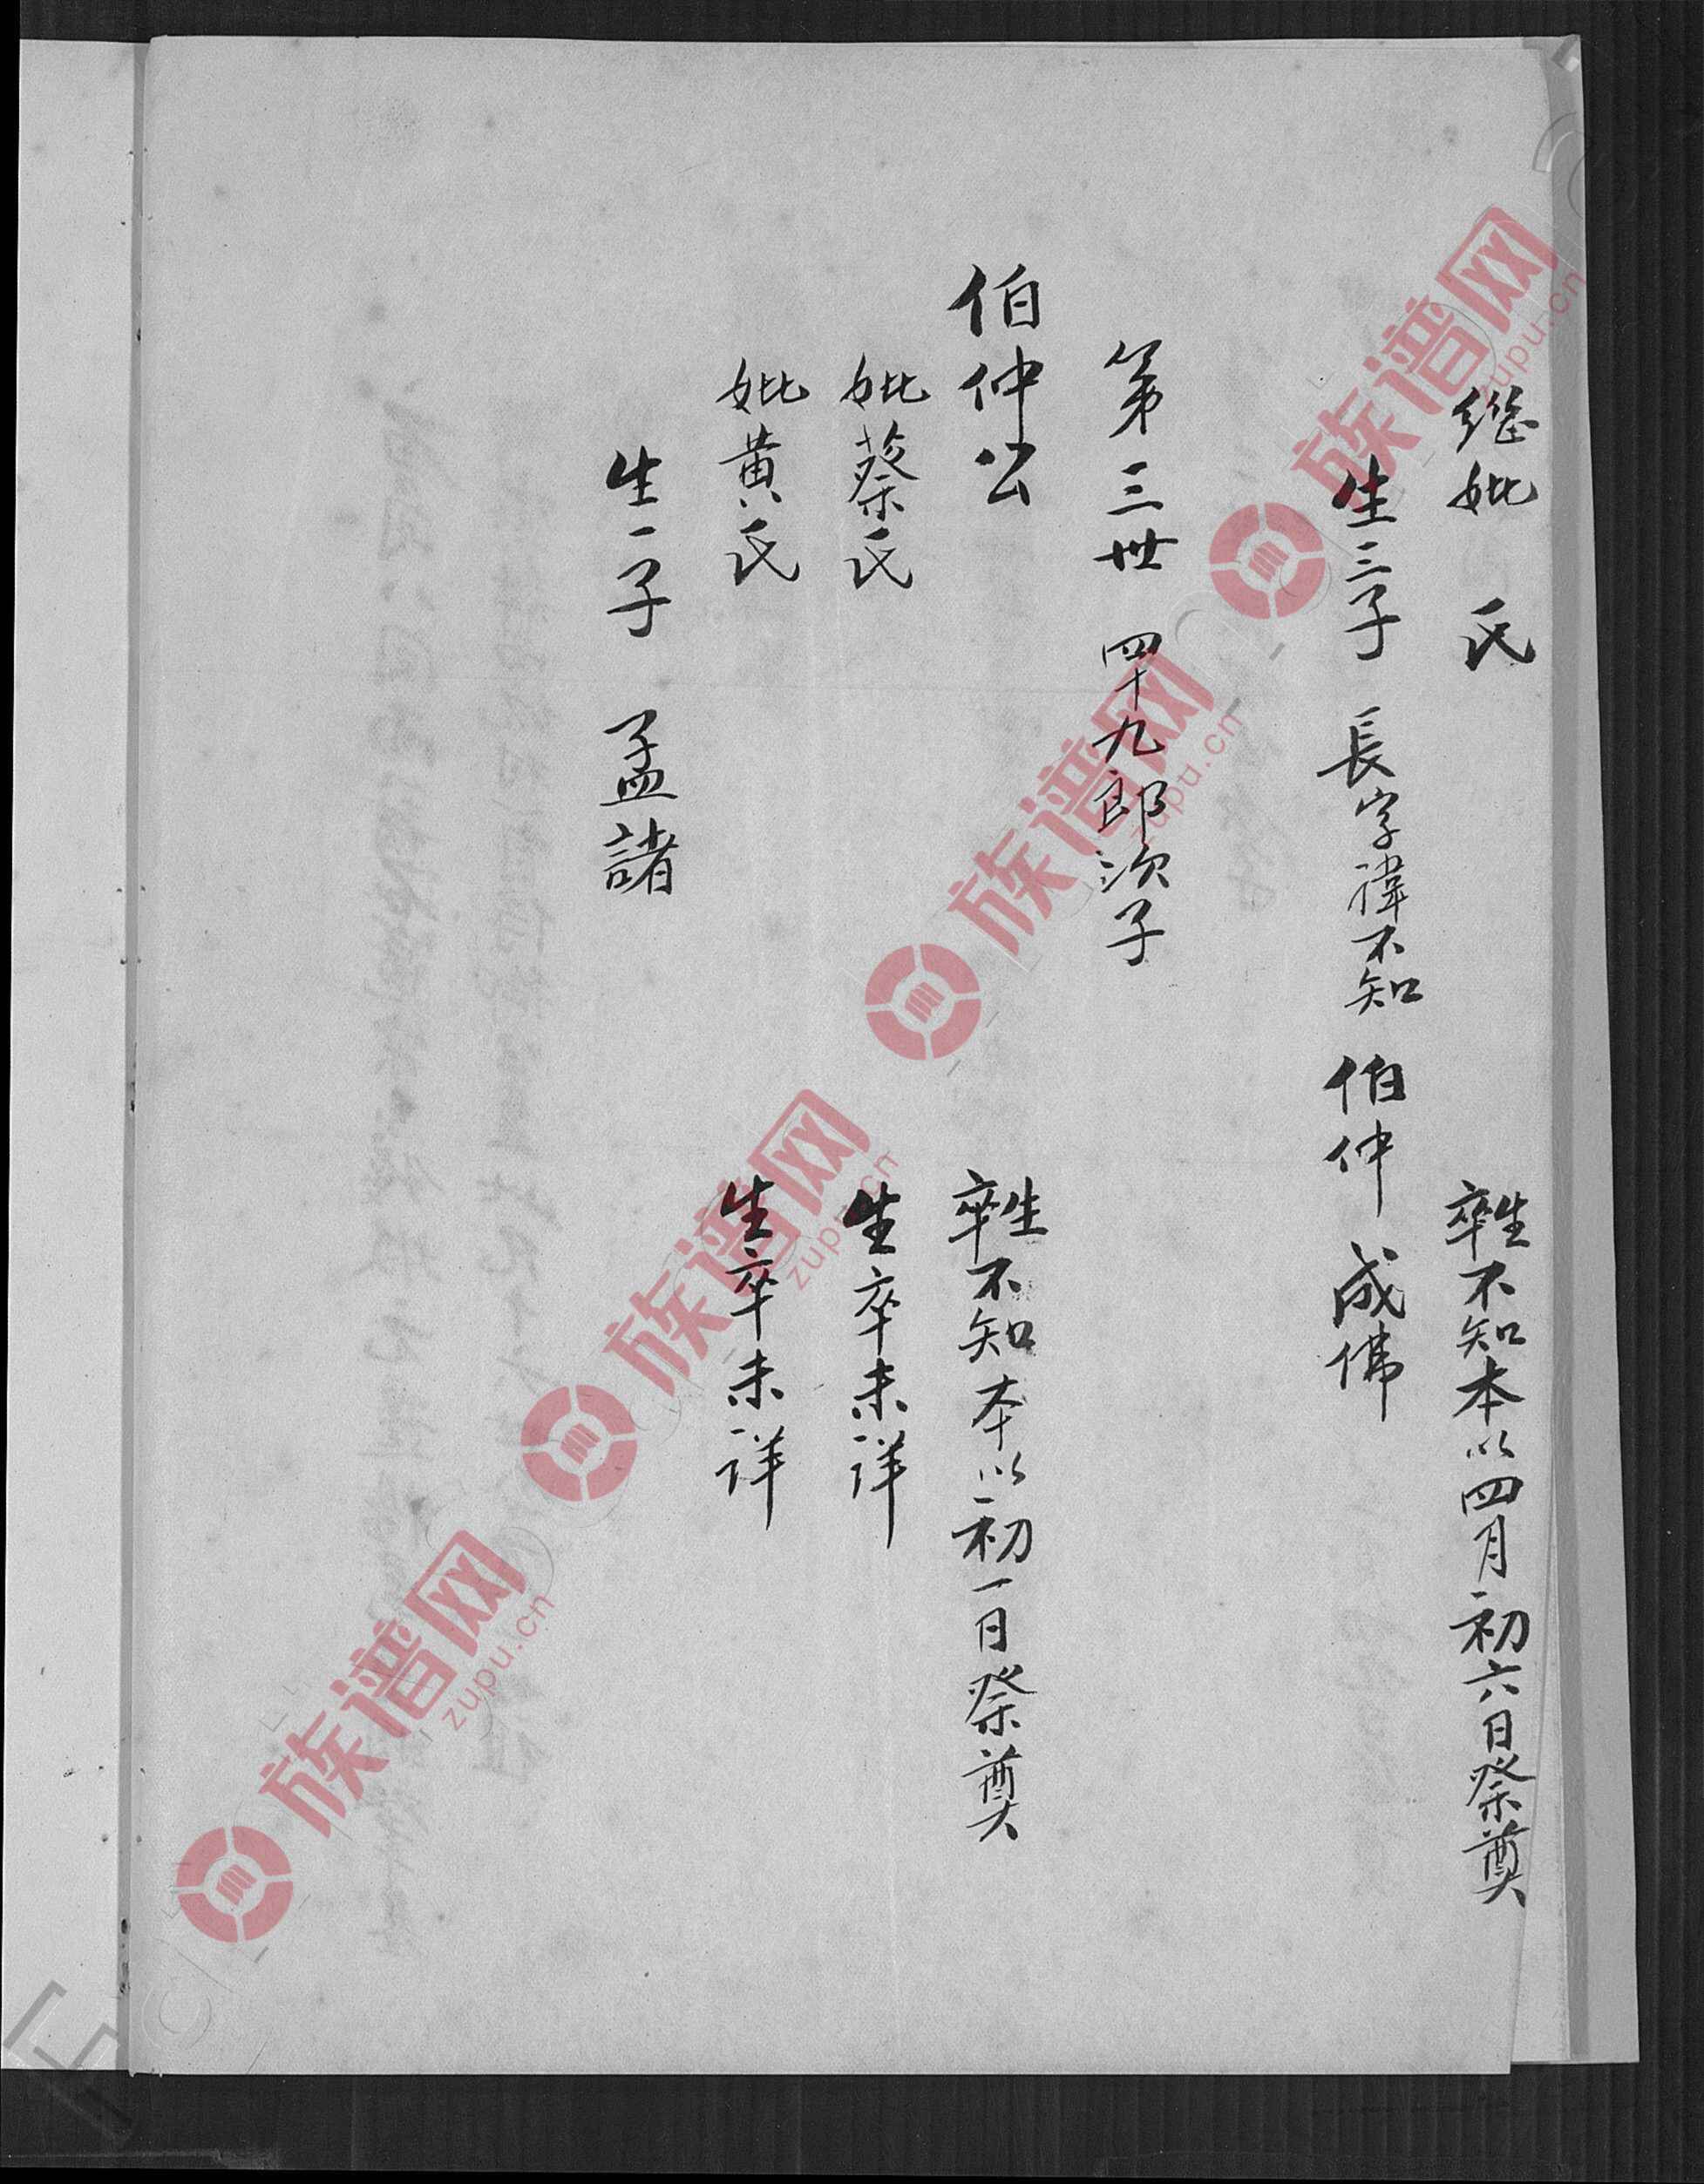 継妣　氏　生卒不知本以四月初六日祭奠
生三子　長字諱不知　伯仲　成佛
第三世　四十九郎次子
伯仲公　生卒不知本以初一日祭奠
妣蔡氏　生卒未详
妣黄氏　生卒未详
生一子　孟諸
族谱网
zupu.cn
族谱网
zupu.cn
族谱网
zupu.cn
族谱网
zupu.cn